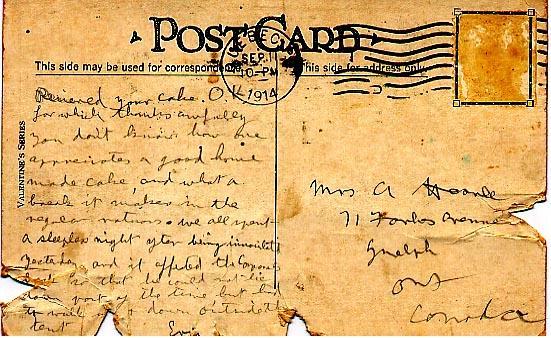 POST CARD
This side may be used for correspondence
This side for address only
SEP 11
10-PM
1914
VALENTINE'S SERIES
Received your cake. O.K.
for which thanks awfully
you don't know how one
appreciates a good home
made cake, and what a
break it makes in the
regular rations. we all spent
a sleepless night after being innoculated
yesterday and it affected the Corporals
so that he could not lie
down part of the time but had
to walk up down outside the
tent
Mrs A
71 Forbes Avenue
Guelph
Ont
Canada